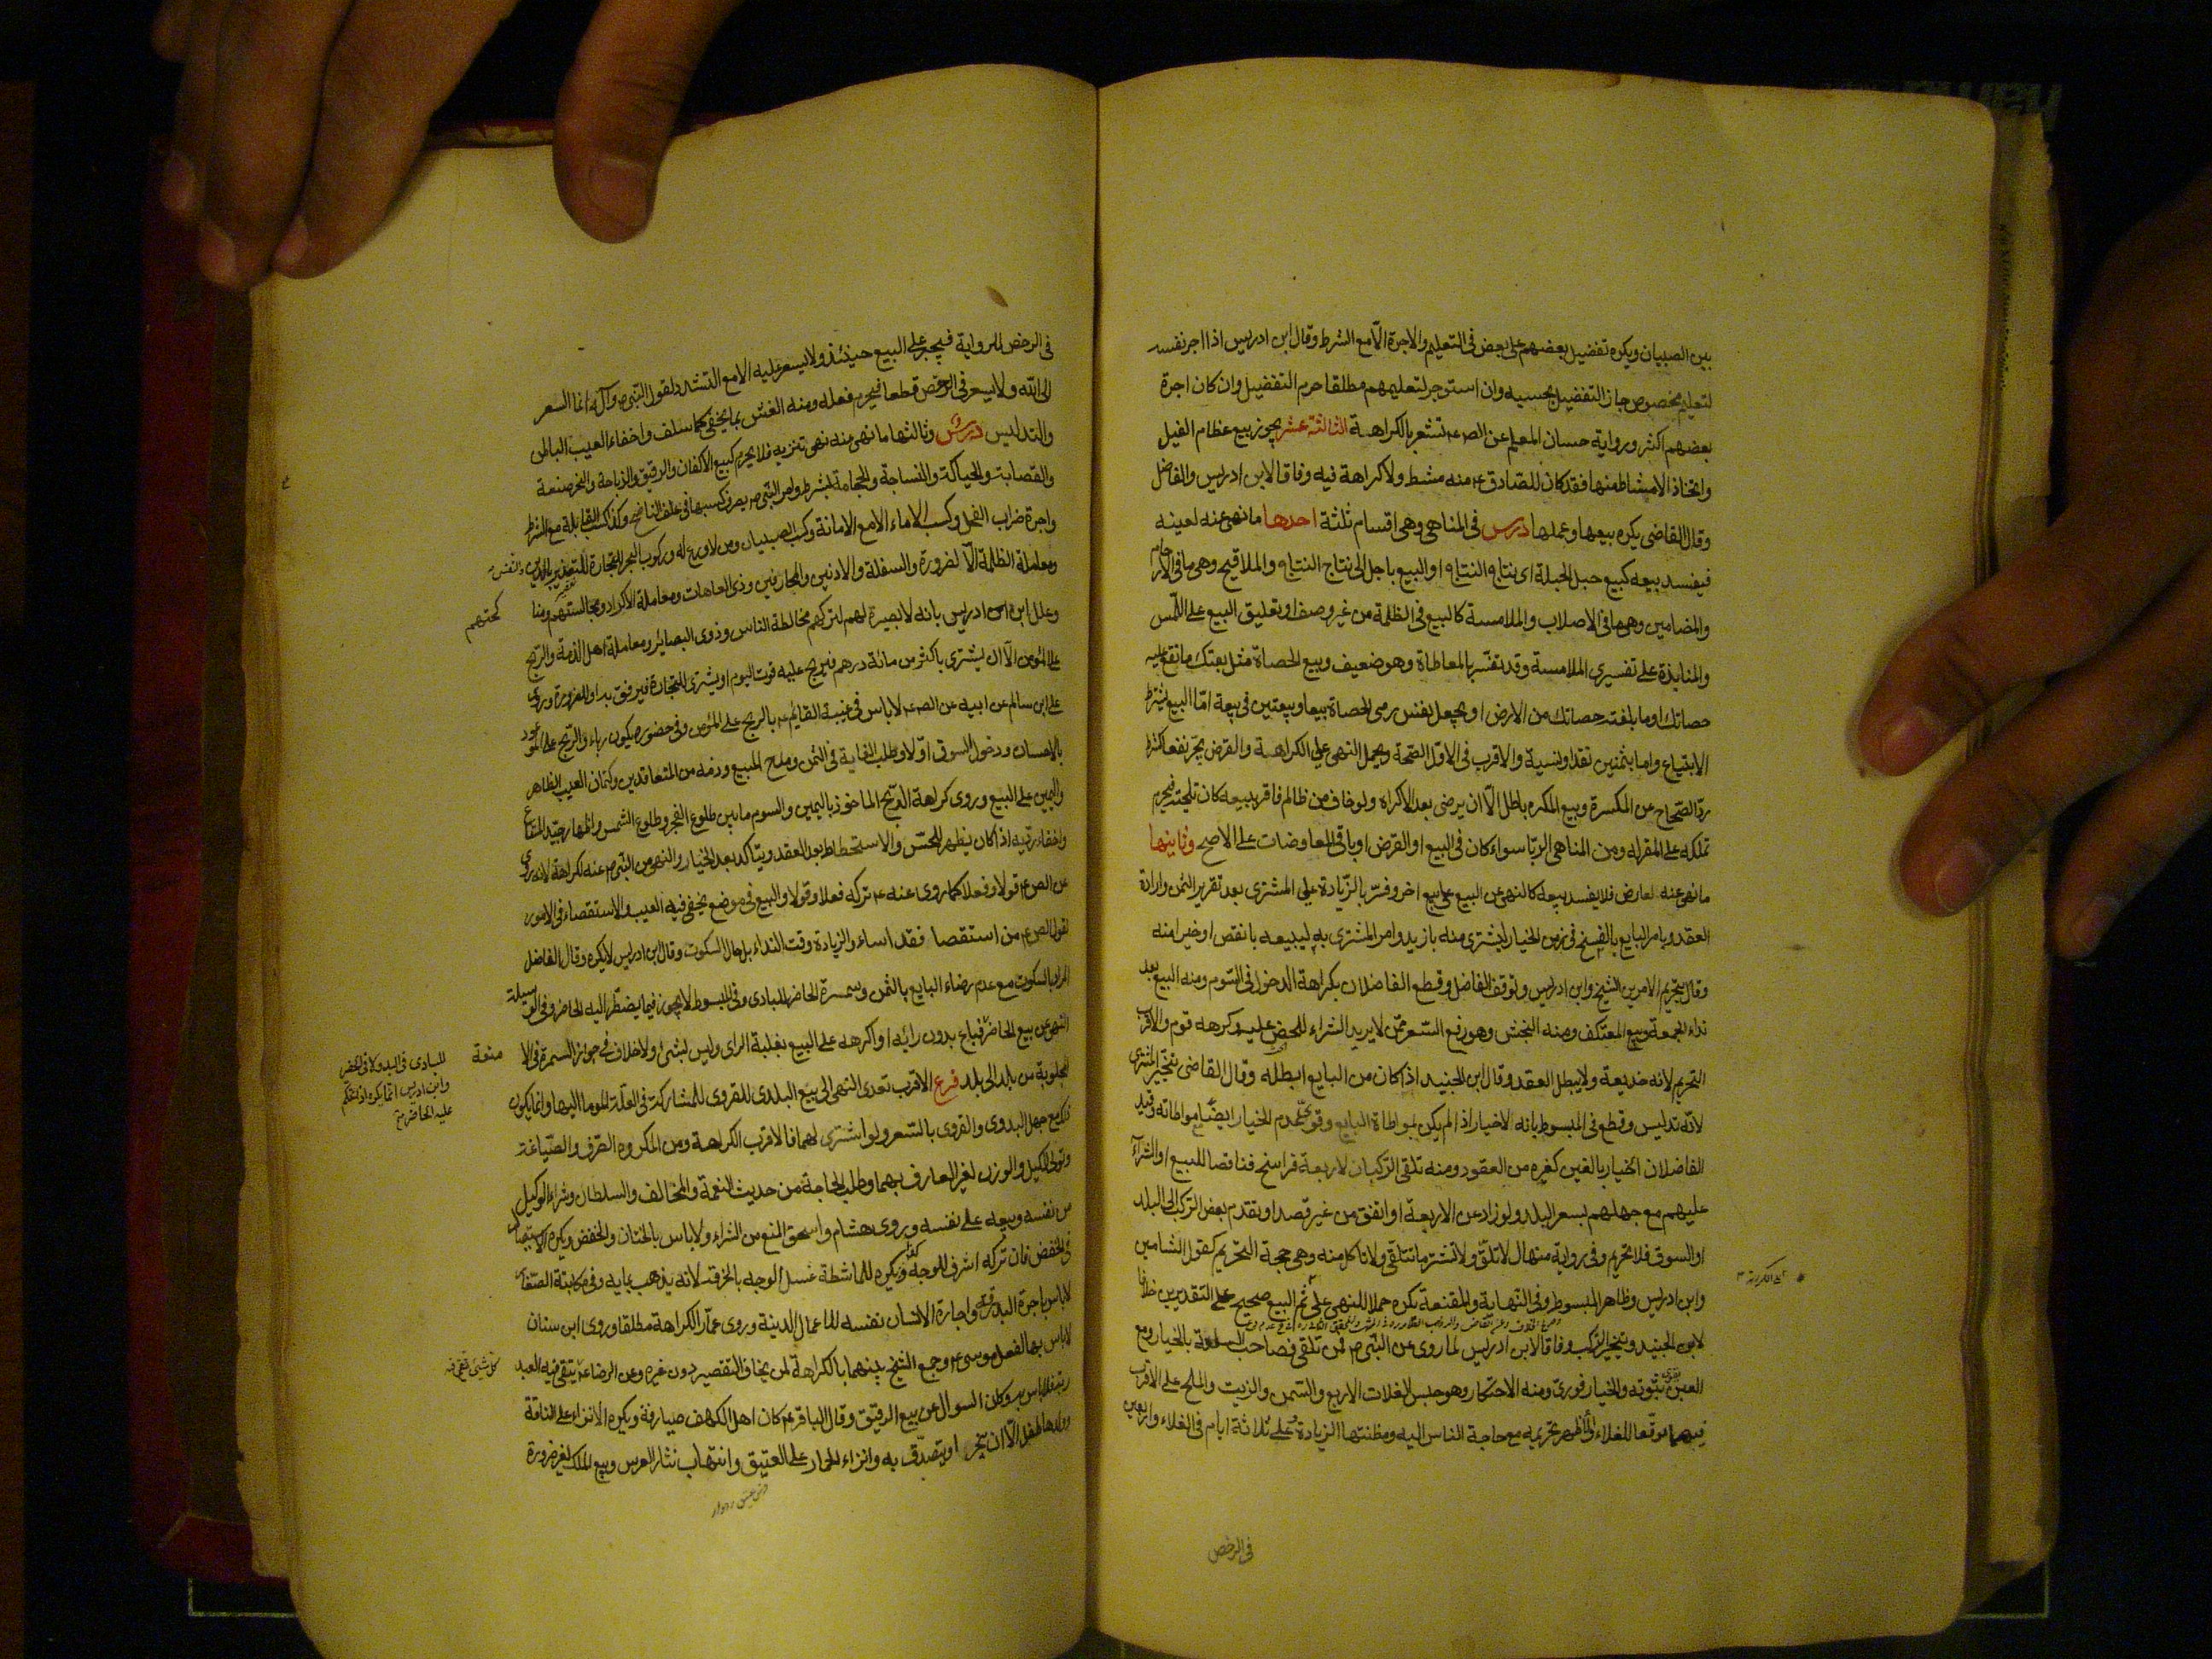 بين الصبيان ويكره تفضيل بعضهم على بعض في التعليم والاجرة الّا مع الشرط وقال ابن ادريس اذا اجر نفسه
لتعليم مخصوص جاز التفضيل بحسبه وان استوجر لتعليمهم مطلقا حرم التفضيل وان كان اجرة
بعضهم اكثر ورواية حسان المعلم عن الص ع تشعر بالكراهة الثالثة عشر يجوز بيع عظام الفيل
واتخاذ الامشاط منها فقد كان للصادق ع منه مشط ولا كراهة فيه وفاقا لابن ادريس والفاضل
وقال القاضى يكره بيعها وعملها درس في المناهى وهى اقسام ثلثة احدها ما نهى عنه لعينه
فيفسد بيعه كبيع حبل الحبلة اى نتاج النتاج او البيع باجل الى نتاج النتاج والملاقيح وهى ما في الارحام
والمضامين وهى ما في الاصلاب والملامسة كالبيع في الظلمة من غير وصف او تعليق البيع على اللمس
والمنابذة على تفسيرى الملامسة وقد تفسّر بالمعاطاة وهو ضعيف وبيع الحصاة مثل بعتك ما تقع عليه
حصاتك او ما بلغته حصاتك من الارض او يجعل نفس رمى الحصاة بيعا وبيعتين في بيعة امّا البيع بشرط
الابتياع واما بثمنين نقدا ونسية والاقرب في الاوّل الصّحة ويحمل النهى على الكراهة والقرض بجرّ نفعا كشرط
ردّ الصّحاح عن المكسرة وبيع المكره باطل الّا ان يرضى بعد الاكراه ولو خاف من ظالم فاقر ببيعه كان تلجئة فيحرم
تملكه على المقر له ومن المناهى الربّا سواء كان في البيع او القرض او باقى المعاوضات على الاصح وثانيها
ما نهى عنه لعارض فلا يفسد بيعه كالنهى عن البيع على بيع اخر وفسّر بالزّيادة على المشترى بعد تقرير الثمن وارادة
العقد ويامر البايع بالفسخ في زمن الخيار ليشترى منه بازيد وامر المشترى به ليبيعه بانقص او خيرا منه
وقال بتحريم الامرين الشيخ وابن ادريس وتوقف الفاضل وقطع الفاضلان بكراهة الدخول في السّوم ومنه البيع بعد
نداء الجمعة وبيع المعتكف ومنه النجش وهو رفع السّعر ممّن لا يريد الشراء للحض عليه وكرهه قوم والاقرب
التحريم لانه خديعة ولا يبطل العقد وقال ابن الجنيد اذا كان من البايع ابطله وقال القاضى تخير المشترى
لانّه تدليس وقطع في المبسوط بانه لا خيار اذا لم يكن بمواطاة البايع وقوى عدم الخيار ايضا مع مواطاته وقيد
الفاضلان الخيار بالغبن كغيره من العقود ومنه تلقى الرّكبان لاربعة فراسخ فناقصا للبيع او الشراء
عليهم مع جهلهم بسعر البلد ولو زاد عن الاربعة او اتفق من غير قصد او تقدم بعض الركب الى البلد
او السوق فلا تحريم وفي رواية منهال لا تلقّ ولا تشتر ما تتلقى ولا تاكل منه وهى حجة التحريم كقول الشاميين
وابن ادريس وظاهر المبسوط وفي النهاية والمقنعة يكره حملا للنهى على ثم البيع صحيح على التقديرين خلافا
لابن الجنيد ويتخير الركب وفاقا لابن ادريس لما روى عن النبى ص فمن تلقى فصاحب السلعة بالخيار ومع
الغبن ثبوته والخيار فورىّ ومنه الاحتكار وهو حبس الغلات الاربع والسّمن والزيت والملح على الاقرب
فيهما توقعا للغلاء والاظهر تحريمه مع حاجة الناس اليه ومظنتها الزيادة على ثلاثة ايام في الغلاء واربعين
في الرخص
في الرخص للرواية فيجبر على البيع حينئذ ولا يسعر عليه الا مع التشدد لقول النبى ص وآله انما السعر
الى الله ولا يسعر في الرخص قطعا فيحرم فعله ومنه الغش بما يخفى كما سلف واخفاء العيب الباطن
والتدليس درس وثالثها ما نهى منه نهى تنزيه فلا يحرم كبيع الاكفان والرقيق والذباحة والنحر صنعة
والقصابة والحياكة والنساجة والحجامة بشرط وامر النبى ص بصرف كسبها في علف الناضح وكذا كسب القابلة مع الشرط
واجرة ضراب الفحل وكسب الاماء الا مع الامانة وكسب الصبيان ومن لا ورع له وركوب البحر للتجارة للتغرير بالدين والنفس
ومعاملة الظلمة الّا لضرورة والسفلة والادنين والمحارفين وذوى العاهات ومعاملة الاكراد ومجالستهم ومنا
كحتهم
وعلل ابن ادريس بانه لا بصيرة لهم لتركهم مخالطة الناس وذوى البصائر ومعاملة اهل الذمة والربح
على المؤمن الّا ان يشترى باكثر من مائة درهم فيربح عليه قوت اليوم او يشترى للتجارة فيرفق به او للضرورة وروى
على ابن سالم عن ابيه عن الص ع لا باس في غيبة القايم ع بالربح على المؤمن وفي حضوره يكون رباء والربح على الموعود
بالاحسان ودخول السوق اوّلا وطلب الغاية في الثمن ومدح المبيع وذمه من المتعاقدين وكتمان العيب الظاهر
واليمين على البيع وروى كراهة الربح الماخوذ باليمين والسوم ما بين طلوع الفجر وطلوع الشمس واظهار جيّد المتاع
واخفاء رديّه اذا كان يظهر للحسّ والاستحطاط بعد العقد ويتاكد بعد الخيار والنهى من النبى ص عنه لكراهة لانه روى
عن الص ع قولا وفعلا كما روى عنه ع تركه فعلا وقولا والبيع في موضع يخفى فيه العيب والاستقصاء في الامور
لقول الص ع من استقصا فقد اساء والزيادة وقت النداء بل حال السكوت وقال ابن ادريس لا يكره وقال الفاضل
المراد بالسكوت مع عدم رضاء البايع بالثمن وسمسرة الحاضر للبادى وفي المبسوط لا يجوز فيما يضطر اليه الحاضر وفي الوسيلة
النهى عن بيع الحاضر متاع بدون رائه او اكرهه على البيع بغلبة الراى وليس بشئ ولا خلاف في جواز السمسرة في الا
متعة
للبادى في البدو لا في الحضر
وابن ادريس انما يكره اذا تحكّم
عليه الحاضر
المجلوبة من بلد الى بلد فرع الاقرب تعدى النهى الى بيع البلدى للقروى للمشاركة في العلّة الموما اليها وانما يكون
ذلك مع جهل البدوى والقروى بالسّعر ولو اشترى لهما فالاقرب الكراهة ومن المكروه الصّرف والصّياغة
وتولى الكيل والوزن لغير العارف بهما وطلب الحاجة من حديث النعمة والمخالف والسلطان وشراء الوكيل
من نفسه وبيعه على نفسه وروى هشام واسحق المنع من الشراء ولا باس بالختان والخفض ويكره الاستيصال
في الخفض فان تركه اشرق للوجه ويكره للماشطة غسل الوجه بالخرقة لانه يذهب بمايه وفي مكاتبة الصفار
لا باس باجرة البدرقة واجارة الانسان نفسه للاعمال الدينة وروى عمّار الكراهة مطلقا وروى ابن سنان
لا باس بها لفعل موسى ع وجمع الشيخ بينهما بالكراهة لمن يخاف التقصير دون غيره وعن الرضا ع يتقى فيه العبد
ربه فلا باس به وكان السوال عن بيع الرقيق وقال الباقر ع كان اهل الكهف صيارفة ويكره الانزاء على الناقة
وولدها طفل الّا ان ينحر او يتصدّق به وانزاء الحمار على العتيق وانتهاب نثار العرس وبيع الملك لغير ضرورة